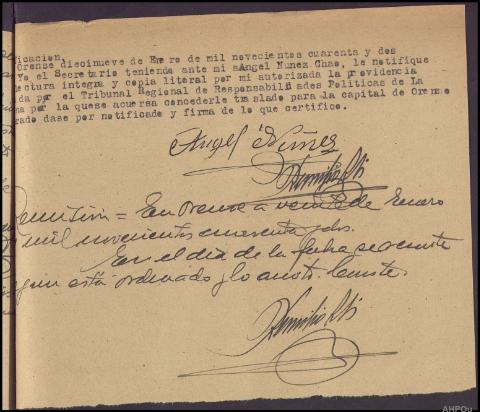 ficacion
Orense diecinueve de Enero de mil novecientos cuarenta y dos
Yo el Secretario teniendo ante mi aAngel Nunez Chao, le notifique
lectura integra y copia literal por mi autorizada la providencia
da por el Tribunal Regional de Responsabilidades Politicas de La
na por la quese acuersa concederle traslado para la capital de Orense
rado dase por notificado y firma de lo que certifico.
Angel Núñez
Remisión = En Orense a veinte de Enero
mil novecientos cuarenta y dos.
En el dia de la fecha se remite
según está ordenado y lo anoto. Conste.
AHPOu